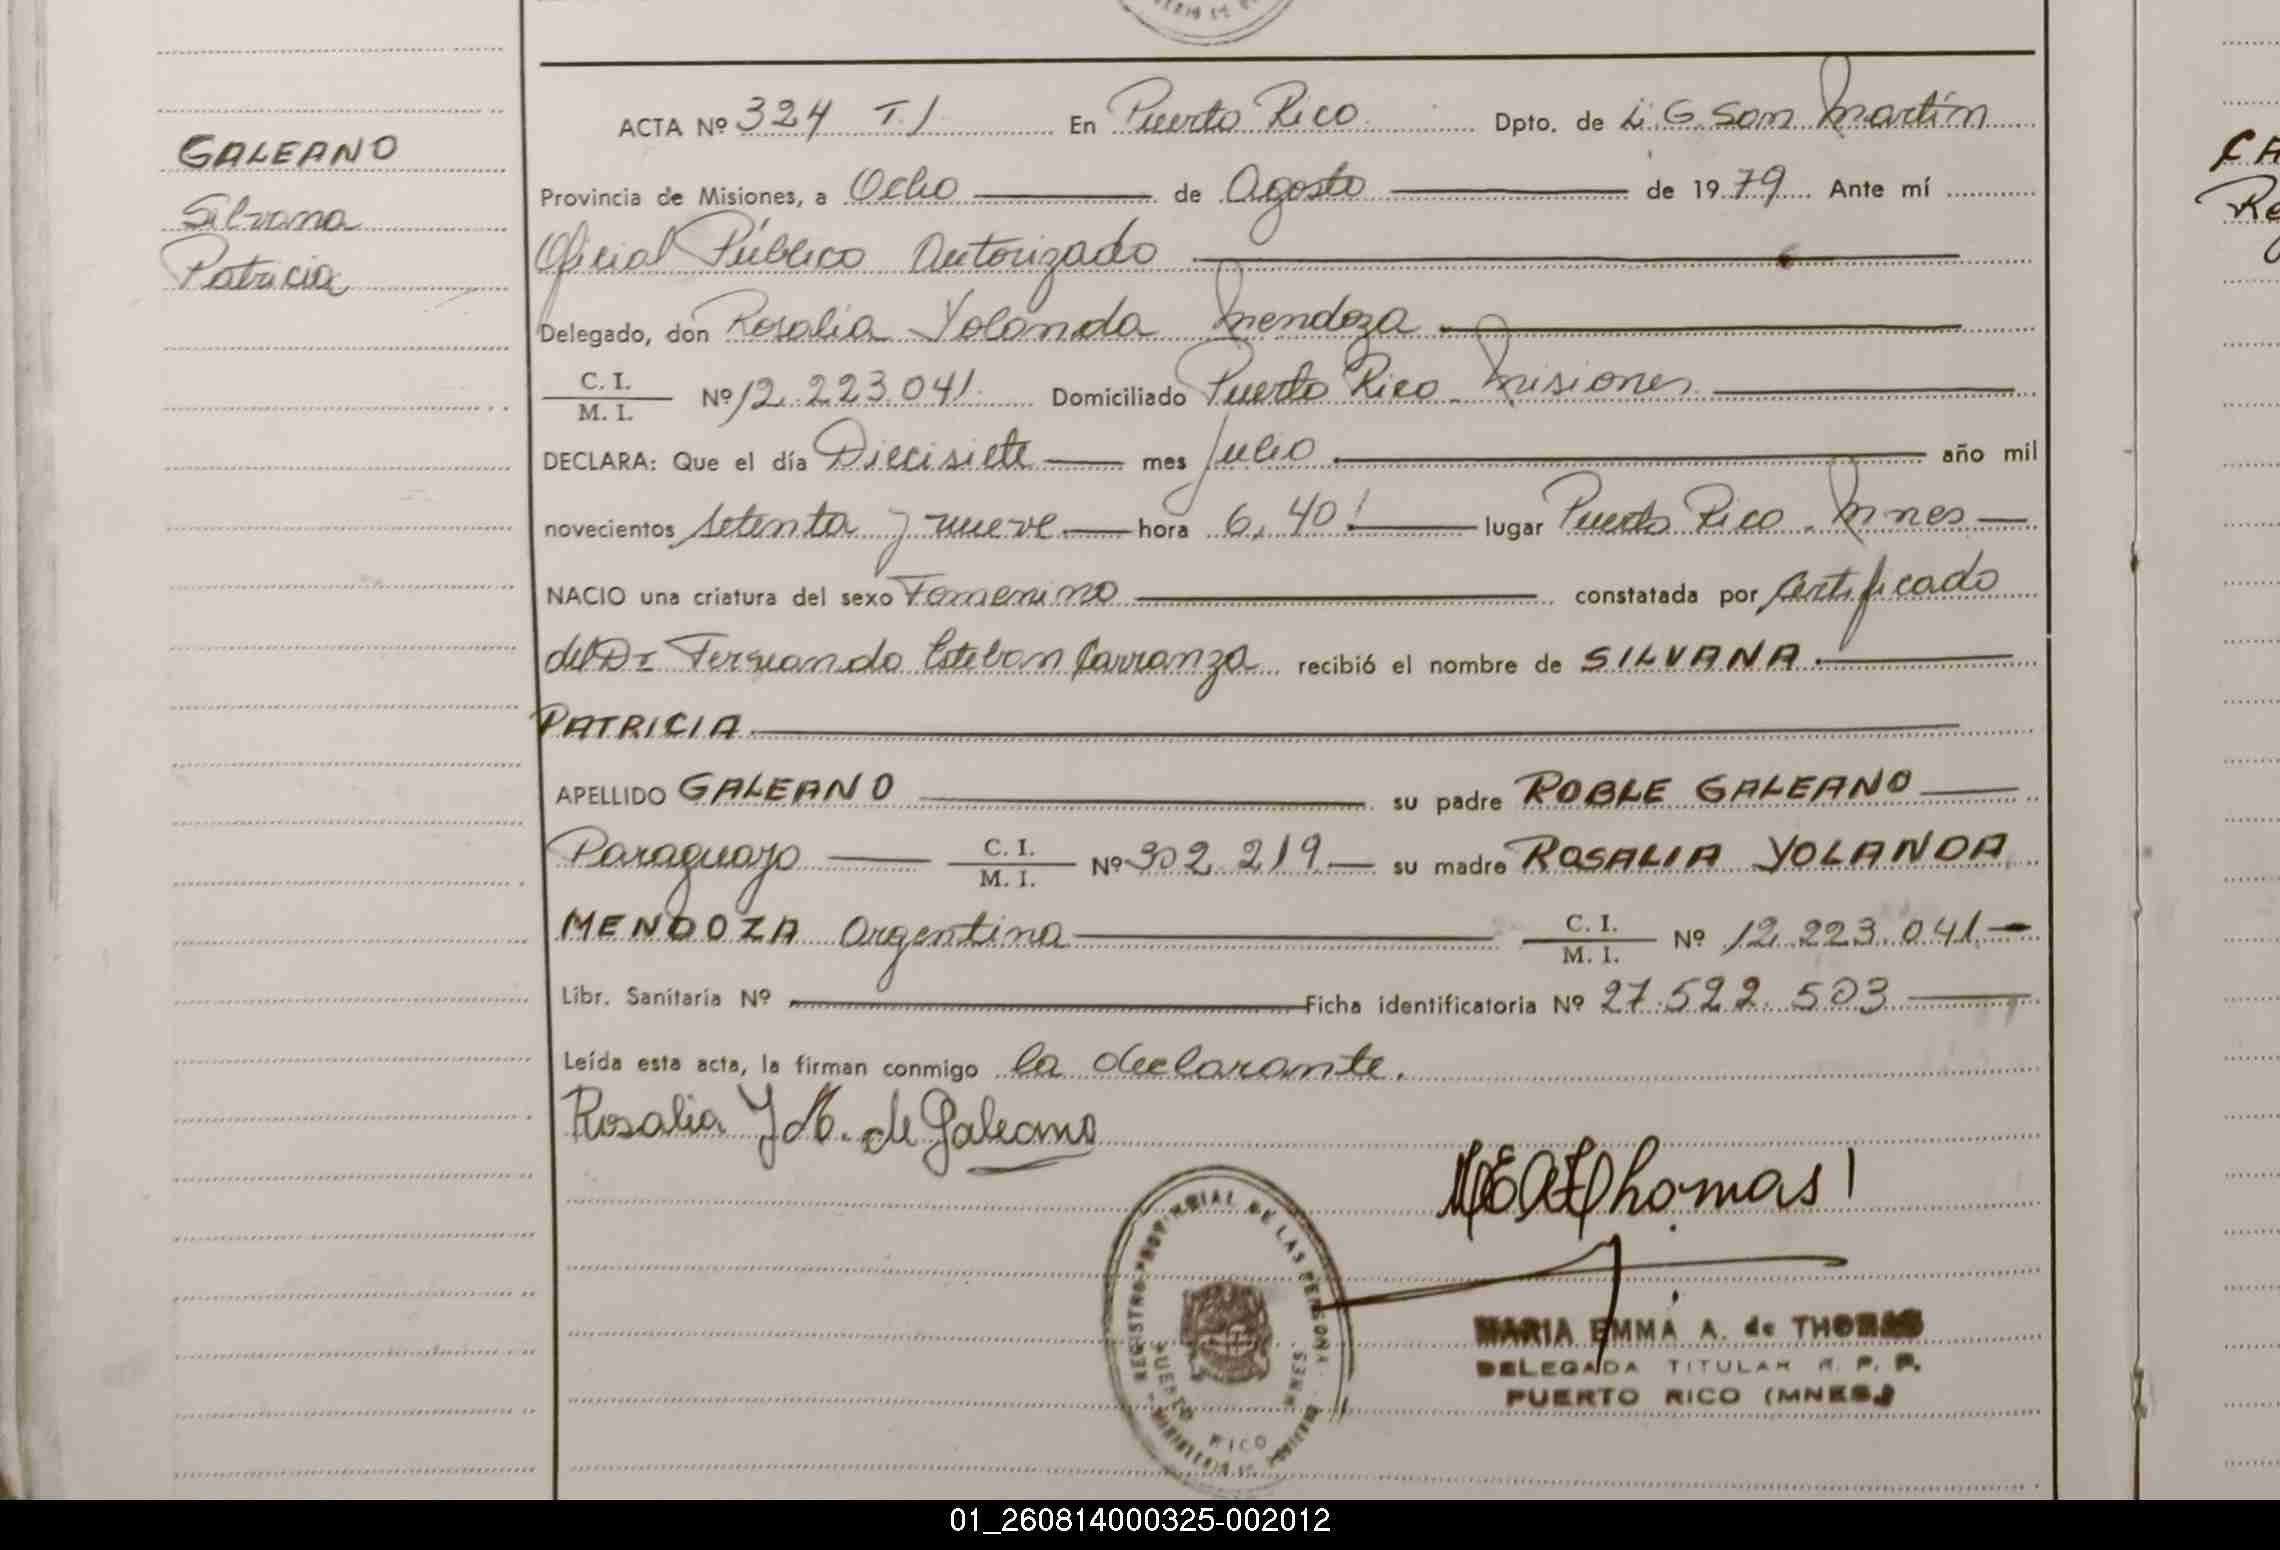 GALEANO
Silvana
Patricia
ACTA Nº 324 T.I En Puerto Rico Dpto. de L. G. San Martín
Provincia de Misiones, a Ocho de Agosto de 1979 Ante mí
Oficial Público Autorizado
Delegado, don Rosalia Yolanda Mendoza
C. I.
M. I.
Nº 12.223.041. Domiciliado Puerto Rico - Misiones
DECLARA: Que el día Diecisiete mes Julio año mil
novecientos setenta y nueve hora 6,40 lugar Puerto Rico - Mnes
NACIO una criatura del sexo Femenino constatada por certificado
del Dr Fernando Esteban Carranza recibió el nombre de SILVANA
PATRICIA
APELLIDO GALEANO su padre ROBLE GALEANO
Paraguayo C. I. M. I. Nº 302.219 su madre ROSALIA YOLANDA
MENDOZA Argentina C. I. M. I. Nº 12.223.041.
Libr. Sanitaria Nº Ficha identificatoria Nº 27.522.503
Leída esta acta, la firman conmigo la declarante.
Rosalia Y M. de Galeano
Thomas
REGISTRO PROVINCIAL DE LAS PERSONAS
PUERTO RICO MNES.
MARIA EMMA A. de THOMAS
DELEGADA TITULAR R. P. P.
PUERTO RICO (MNES.)
01_260814000325-002012